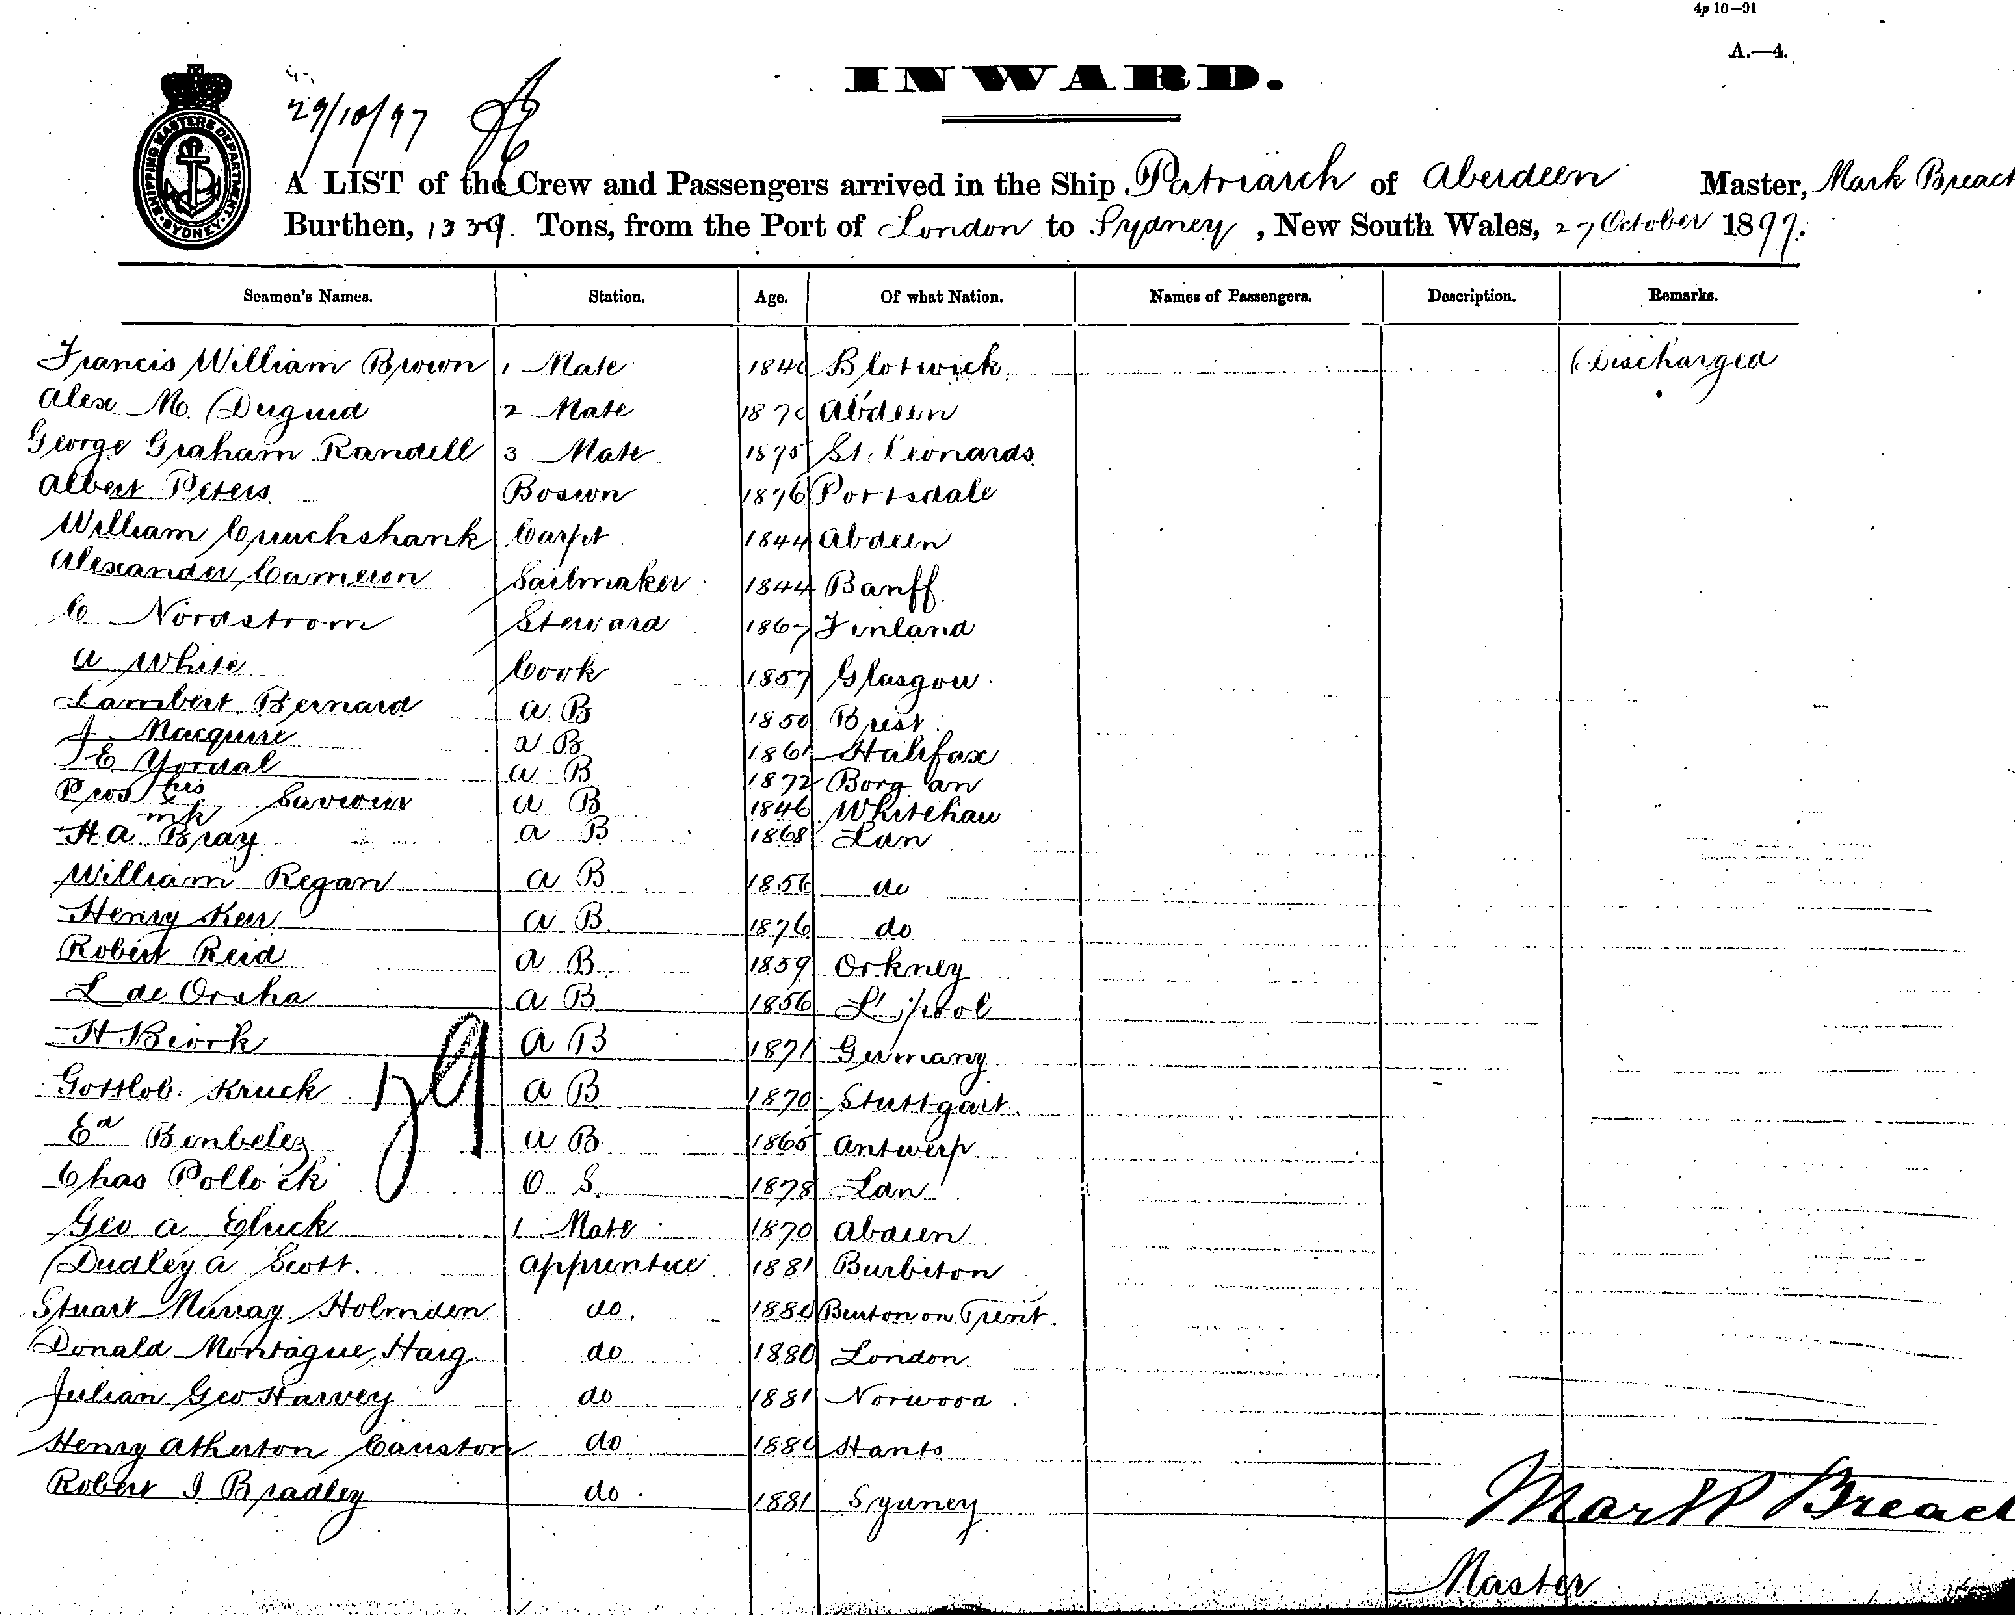 4p 10—91
A.—4.
INWARD.
29/10/97
SHIPPING MASTERS DEPARTMENT SYDNEY
A LIST of the Crew and Passengers arrived in the Ship Patriarch of Aberdeen Master, Mark Breach
Burthen, 1339. Tons, from the Port of London to Sydney, New South Wales, 27 October 1897.
Seamen's Names. Station. Age. Of what Nation. Names of Passengers. Description. Remarks.
Francis William Brown 1 Mate Discharged
Alex M. Duguid 2 Mate 1870 Abdeen
George Graham Randell 3 Mate 1875 St. Leonards
Albert Peters Boswn 1876 Portsdale
William Cruickshank Carpt 1844 Abdeen
Alexander Cameron Sailmaker 1844 Banff
C Nordstrom Steward 1867 Finland
A White Cook 1857 Glasgow
Lambert Bernard A B 1850 Brest
J. Macquire A B 1861 Halifax
E Yordal A B 1872
his
Saviour A B 1846
mk
H A Bray A B 1868 Lon
William Regan A B 1856 do
Henry Kerr A B 1876 do
Robert Reid A B 1859 Orkney
L de A B 1856 L'pool
H Biork A B 1871 Germany
Gottlob Kruck A B 1870 Stuttgart
Ed A B 1865 Antwerp
Chas Pollock O S. 1878 Lon
Geo A 1 Mate 1870 Abdeen
Dudley A Scott. Apprentice 1881 Surbiton
Stuart Murray Holmden do. 1880 Burton on Trent.
Donald Montague Haig do 1880 London
Julian Geo Harvey do 1881 Norwood
Henry Atherton Causton do 1880 Hants
Robert J Bradley do. 1881 Sydney
Mark Breach
Master